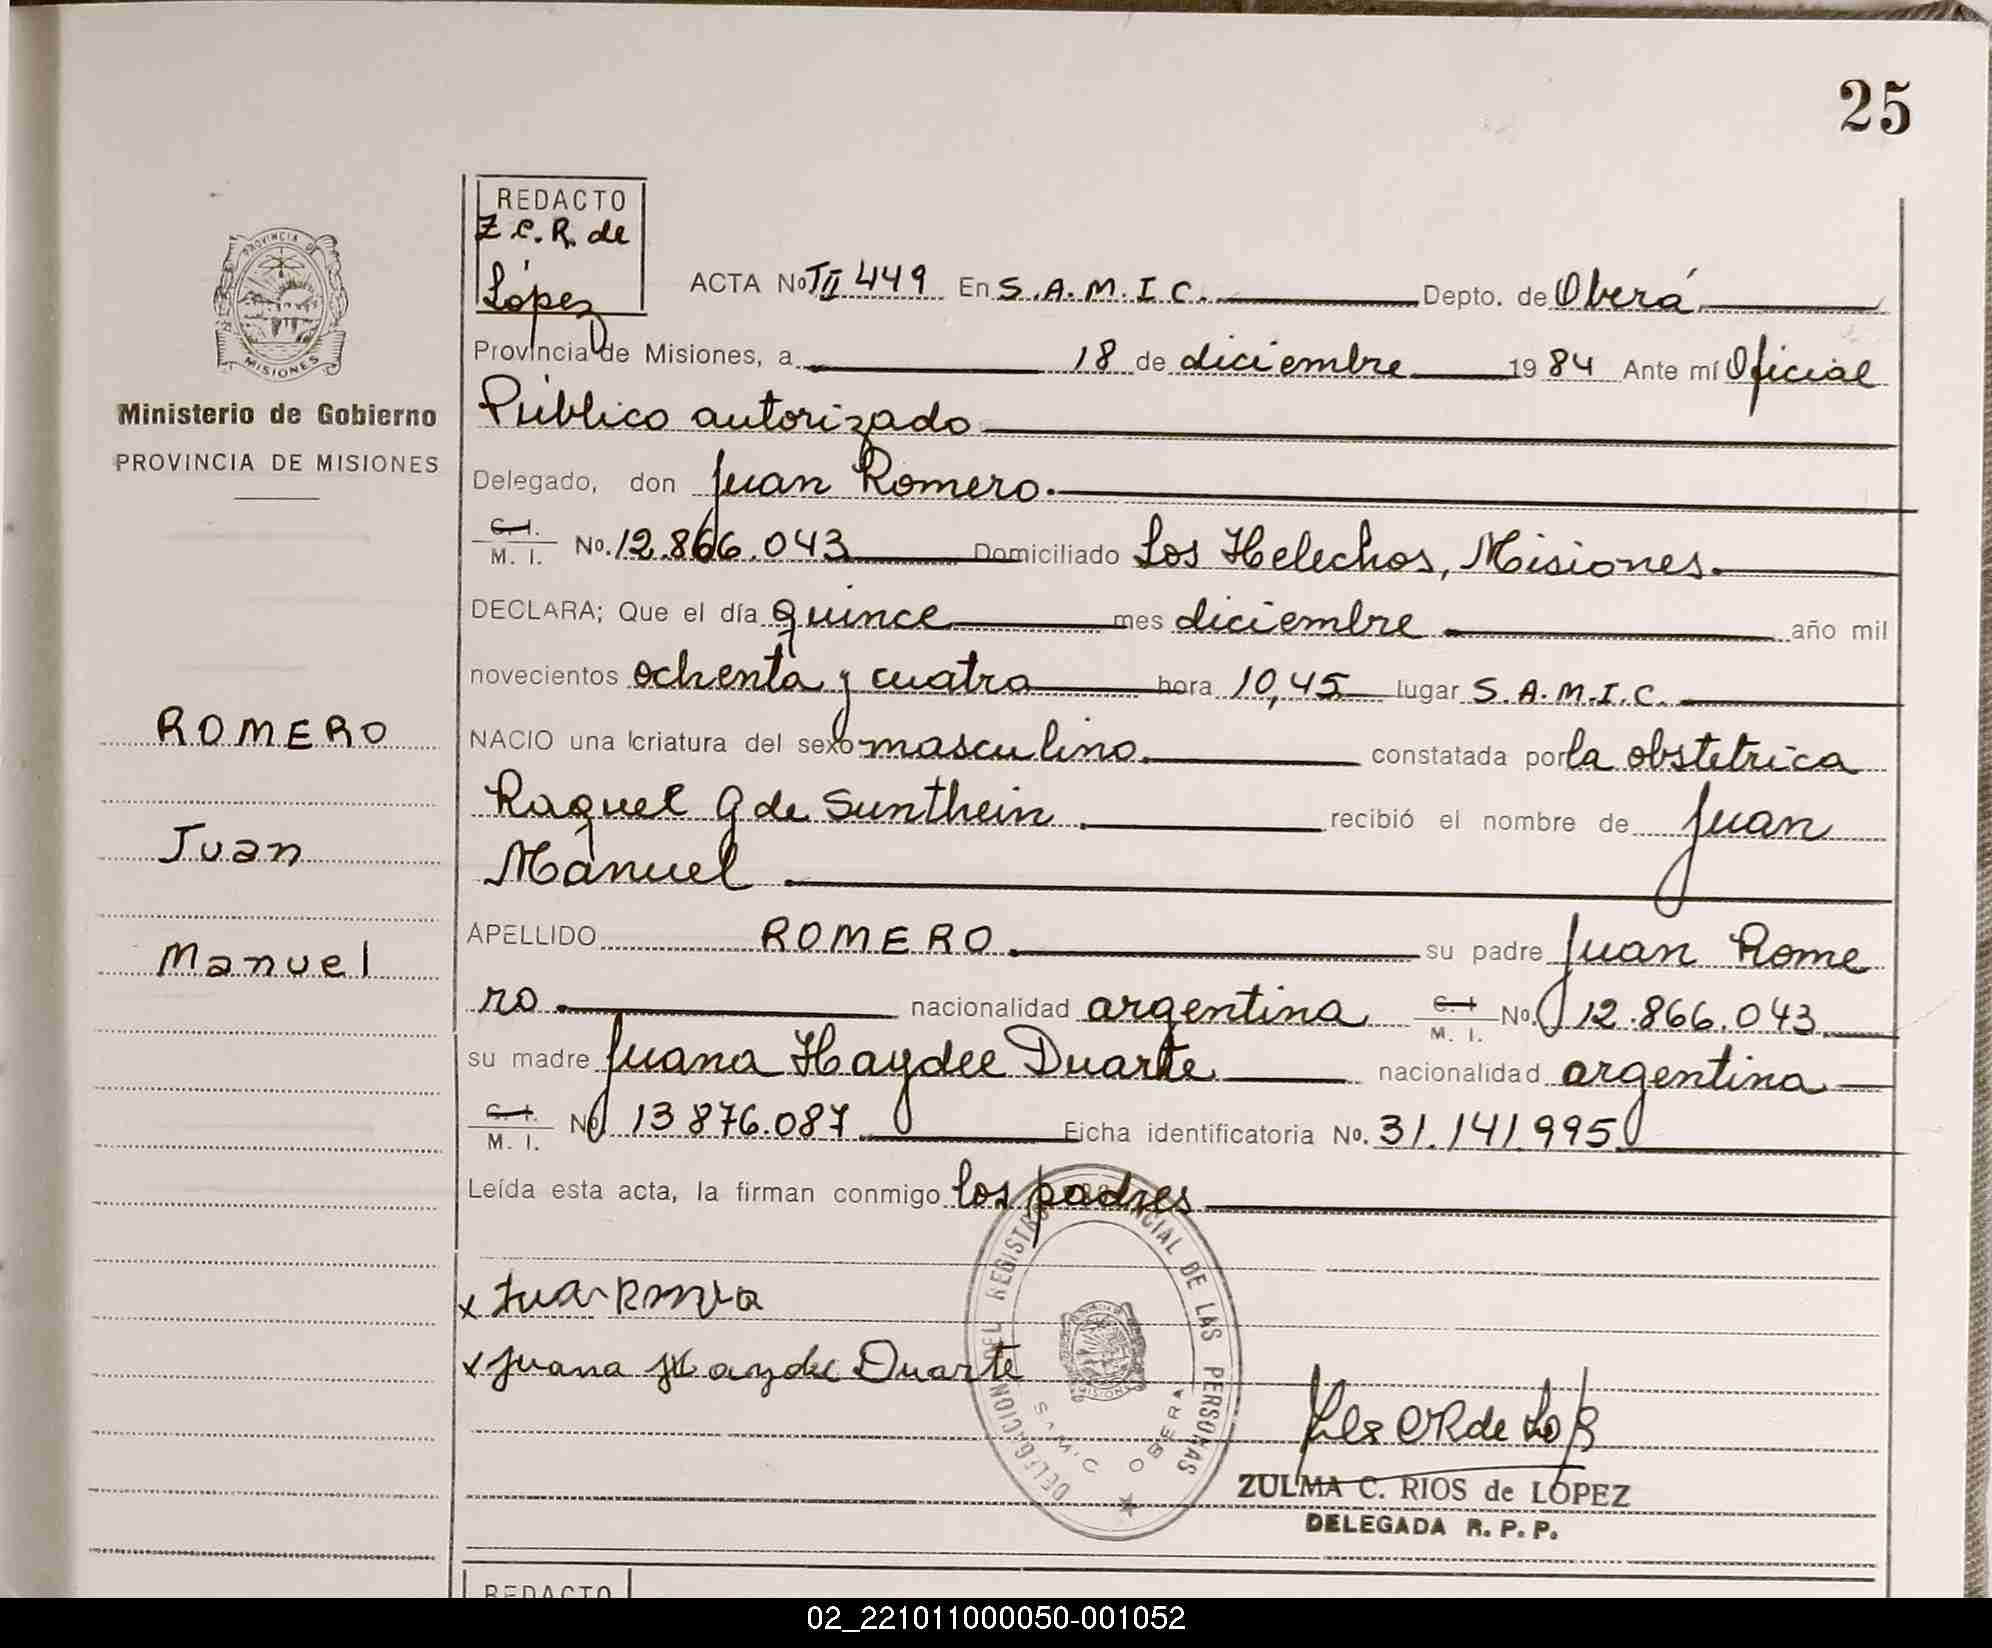 25
REDACTO
Z.C.R. de
López
PROVINCIA DE
MISIONES
Ministerio de Gobierno
PROVINCIA DE MISIONES
ACTA No TII 449 En S.A.M.I.C. Depto. de Oberá
Provincia de Misiones, a 18 de diciembre 1984 Ante mí Oficial
Público autorizado
Delegado, don Juan Romero.
C. I.
M. I. No. 12.866.043 Domiciliado Los Helechos, Misiones.
DECLARA; Que el día quince mes diciembre año mil
novecientos ochenta y cuatro hora 10,45 lugar S.A.M.I.C.
NACIO una criatura del sexo masculino. constatada por la obstetrica
Raquel G de Sunthein recibió el nombre de Juan
Manuel
APELLIDO ROMERO. su padre Juan Rome
ro. nacionalidad argentina C. I.
M. I. No. 12.866.043
su madre Juana Haydee Duarte nacionalidad argentina
C. I.
M. I. No 13876.087 Ficha identificatoria No. 31.141.995
Leída esta acta, la firman conmigo los padres
ROMERO
Juan
Manuel
x Juana Haydee Duarte
DELEGACION DEL REGISTRO PROVINCIAL DE LAS PERSONAS
MISIONES
SAMIC OBERA
ZULMA C. RIOS de LOPEZ
DELEGADA R. P. P.
REDACTO
02_221011000050-001052